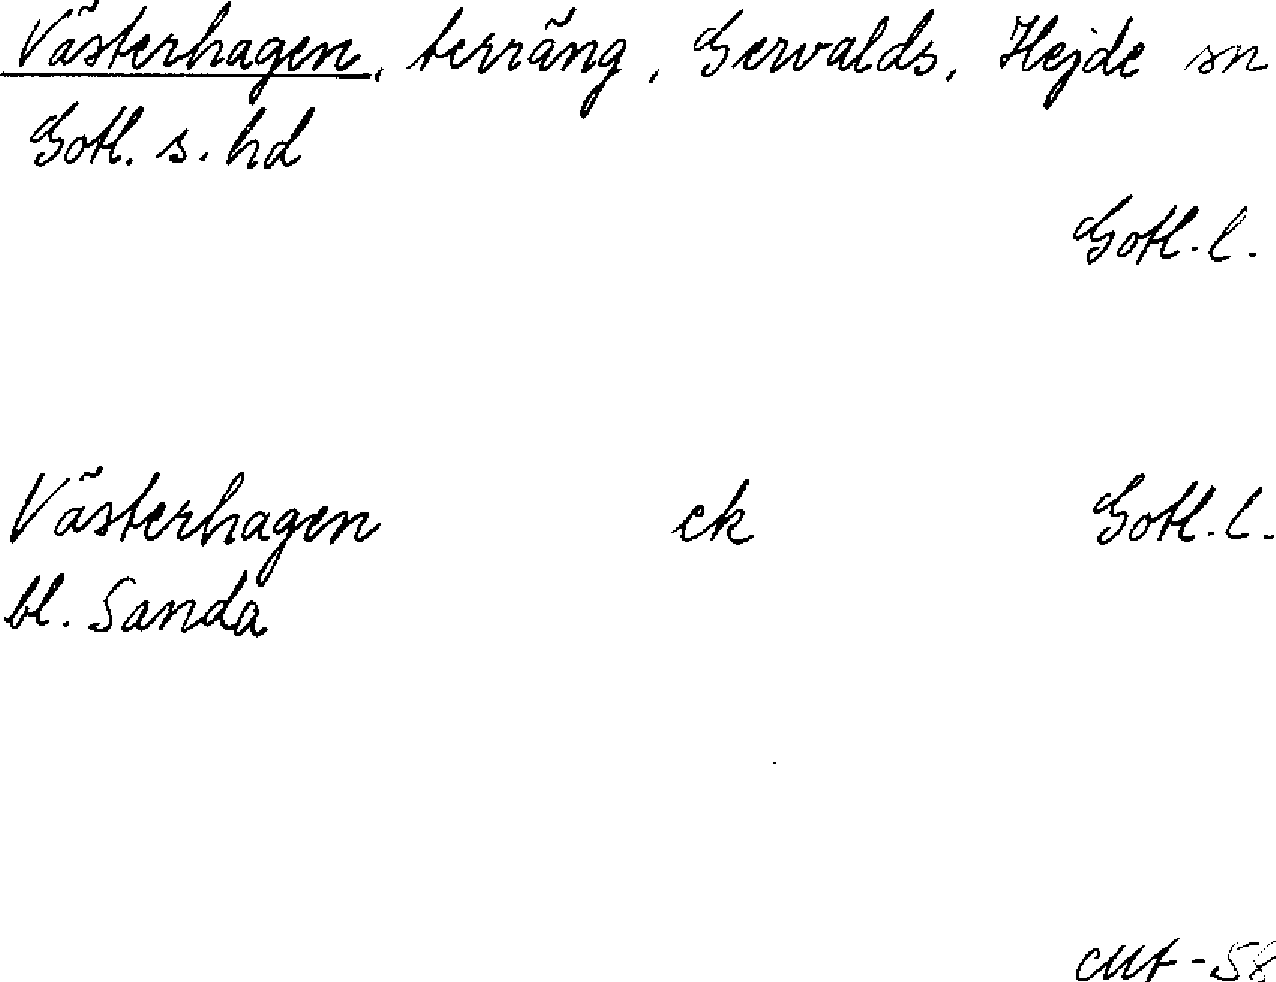 Västerhagen, terräng, Gervalds, Hejde sn
Gotl. s. hd
Gotl. l.
Västerhagen ek Gotl. l.
bl. Sanda
-58